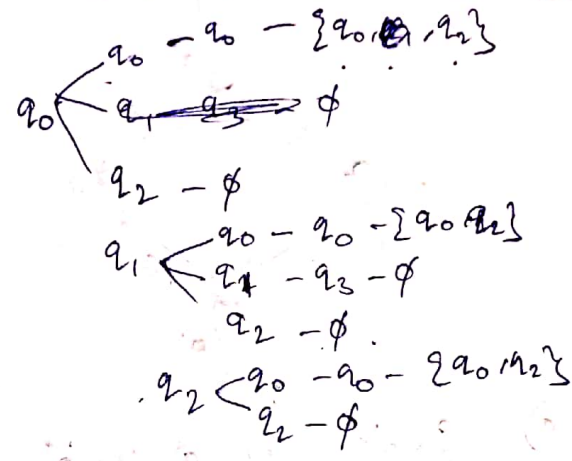 q₀ – q₀ – {q₀, , q₂}
q₀ q₁ q₃ φ
q₂ – φ
q₀ – q₀ – {q₀ q₂}
q₁ q₁ – q₃ – φ
q₂ – φ.
q₂ q₀ – q₀ – {q₀, q₂}
q₂ – φ.